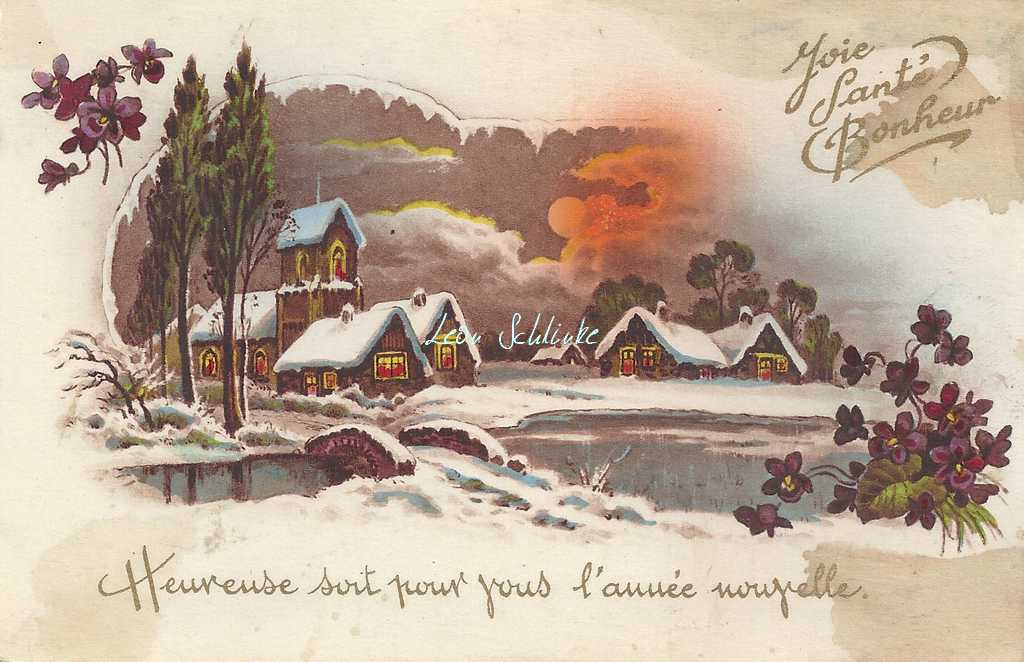 Joie
Santé
Bonheur
Léon Schlinke
Heureuse soit pour vous l'année nouvelle.